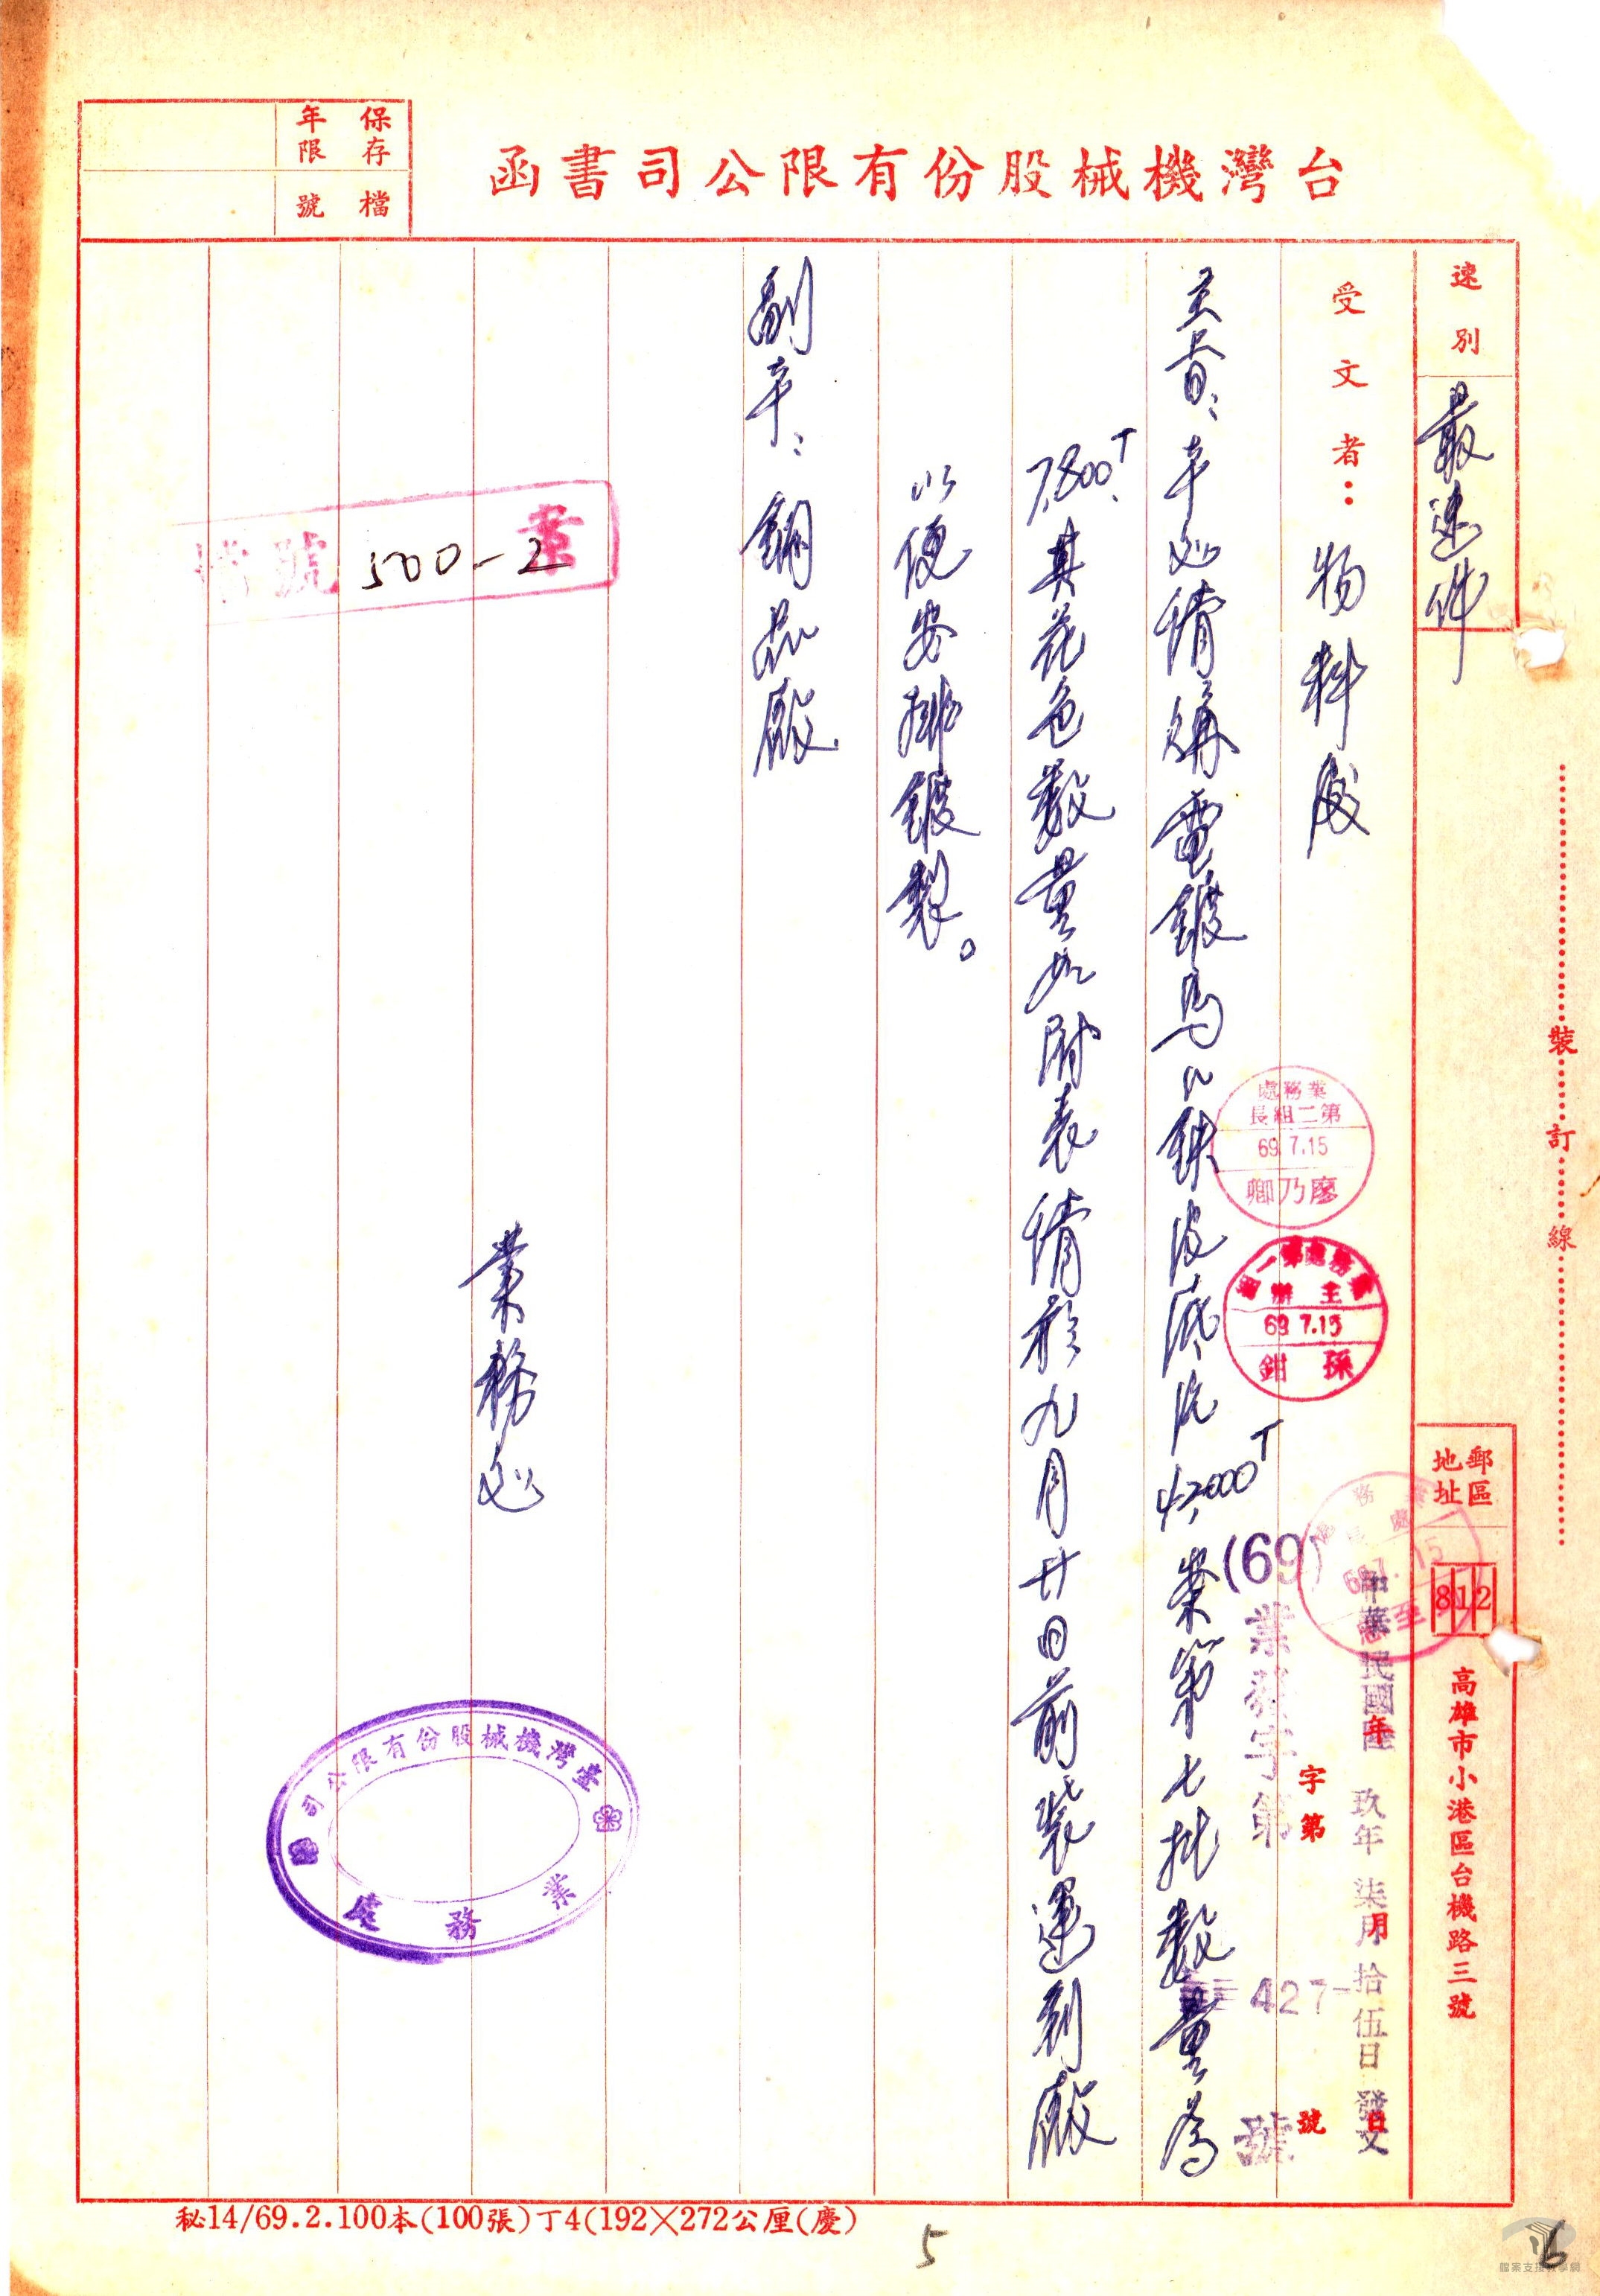 台灣機械股份有限公司書函
保存年限
檔號
速別 最速件
受文者：物料處
郵區地址
812
高雄市小港區台機路三號
中華民國陸玖年柒月拾伍日發文
年 月 日
(69)業務字第 427 號
字第 號
主旨：本處請購電鍍馬口鐵皮底片 42,000T 案第七批數量為
7,800T、其花色數量如附表請於九月廿日前裝運到廠
以便安排鍍製。
副本：鋼品廠
業務處
業 500-2 號檔
業務處
第二組長
69.7.15
廖乃卿
業務處第一組
主辦
69.7.15
孫鉗
業務處
69.7.15
臺灣機械股份有限公司
業務處
裝訂線
秘14/69.2.100本(100張)丁4(192×272公厘(慶)
5
檔案支援教學網